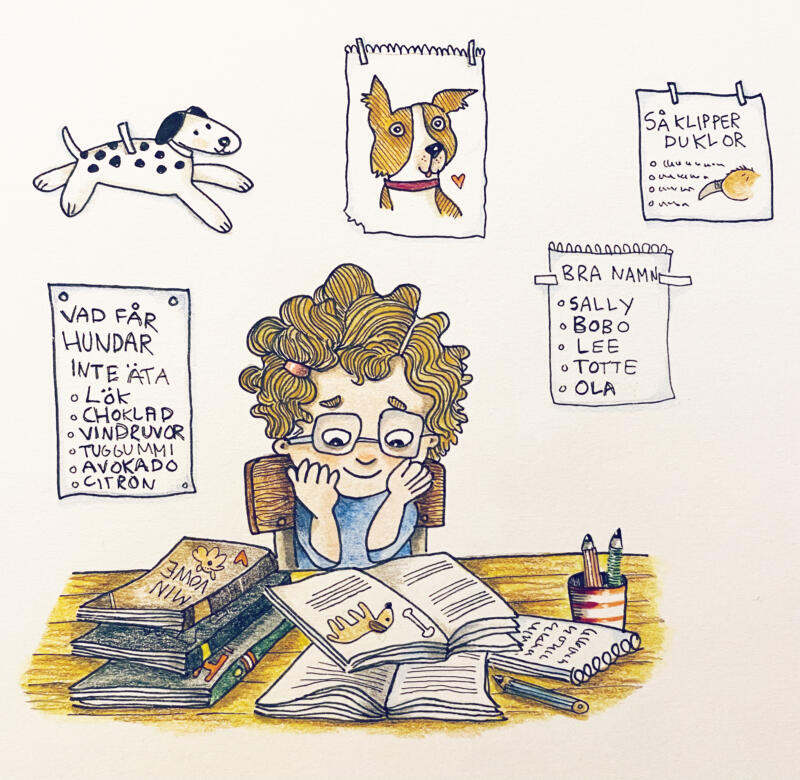 SÅ KLIPPER
DU KLOR
BRA NAMN
SALLY
BOBO
LEE
TOTTE
OLA
VAD FÅR
HUNDAR
INTE ÄTA
LÖK
CHOKLAD
VINDRUVOR
TUGGUMMI
AVOKADO
CITRON
MIN
VOVVE